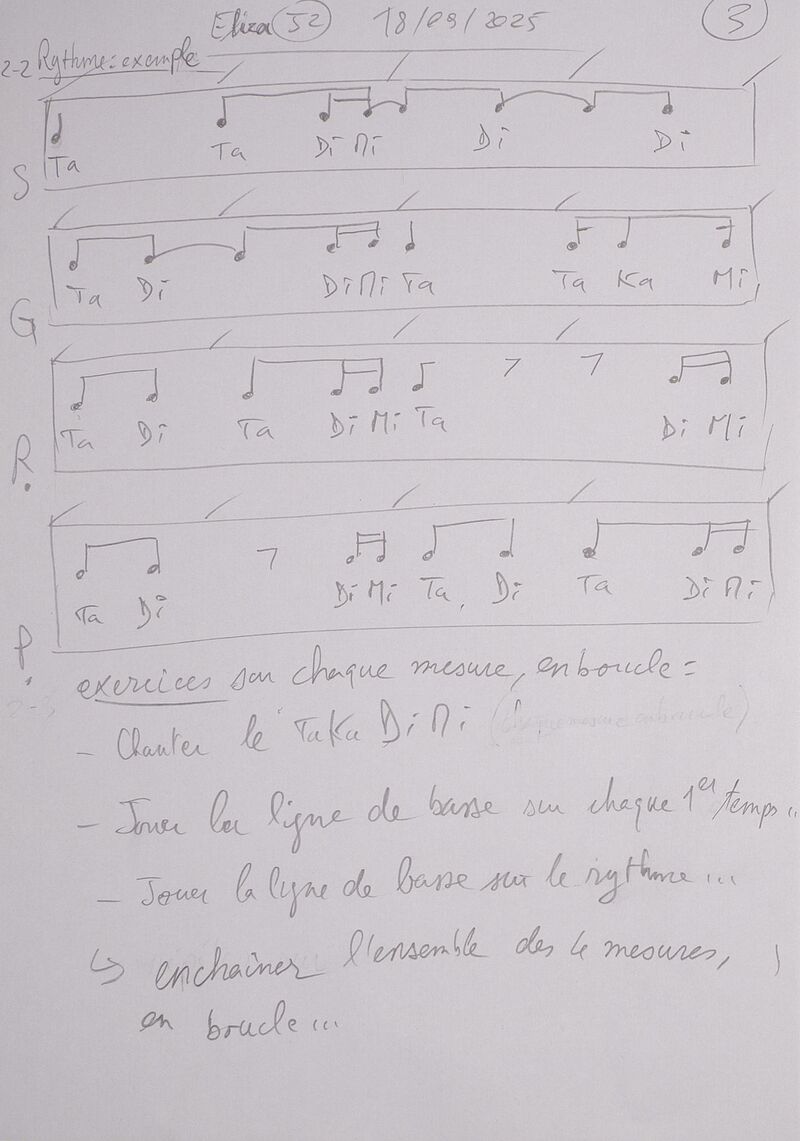 Eliza J2 18/09/2025 3
2-2 Rythme: exemple
Ta Ta Di Mi Di Di
S
Ta Di Di Mi Ta Ta Ka Mi
G
Ta Di Ta Di Mi Ta Di Mi
R.
Ta Di Di Mi Ta Di Ta Di Mi
P.
exercices sur chaque mesure, en boucle =
2-3
- Chanter le TaKa Di Mi (chaque mesure en boucle)
- Jouer la ligne de basse sur chaque 1er temps...
- Jouer la ligne de basse sur le rythme...
↳ enchaîner l'ensemble des 4 mesures,
en boucle...